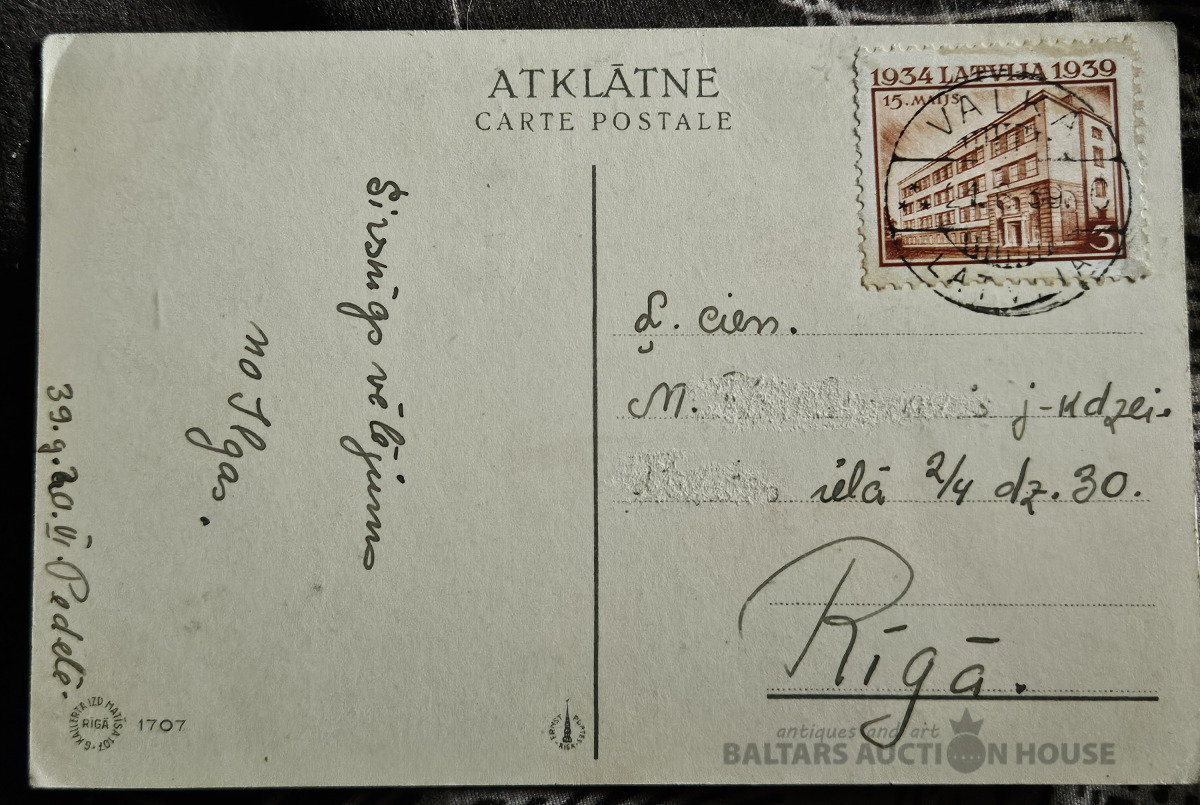 ATKLĀTNE
CARTE POSTALE
1934 LATVIJA 1939
15. MAIJS
3
VALKA
LATVIJA
Sirsnīgs vēlējums
no Ilgas.
39. g. 20. VI Pedelē.
Ļ. cien.
M. j-kdzei.
ielā 2/4 dz. 30.
Rīgā.
G. KALLERTA IZD MATĪSA 107
RĪGĀ
1707
ERNST PLATES
RIGA
antiques and art
BALTARS AUCTION HOUSE